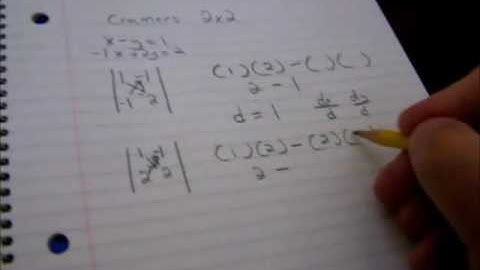 Cramers 2x2
x - y = 1
-1x + 2y = 2
|1 -1| (1)(2) - ( )( )
|-1 2| 2 - 1
d = 1 dx/d dy/d
|1 -1| (1)(2) - (2)(
|2 2| 2 -